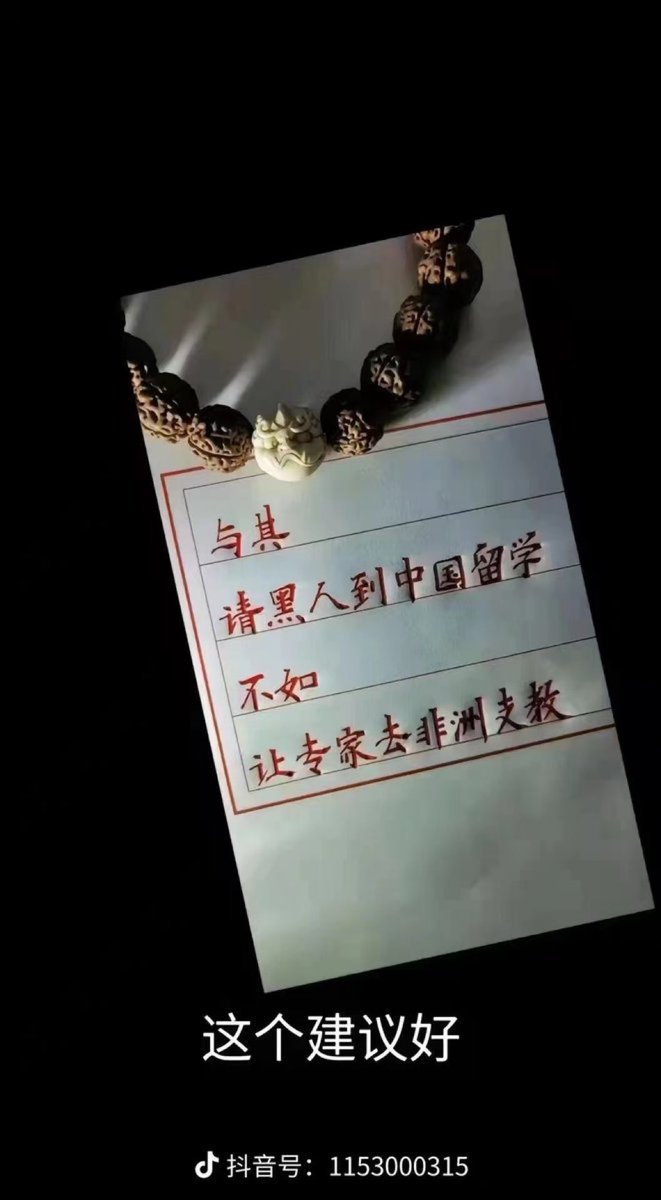 与其
请黑人到中国留学
不如
让专家去非洲支教
这个建议好
抖音号：1153000315